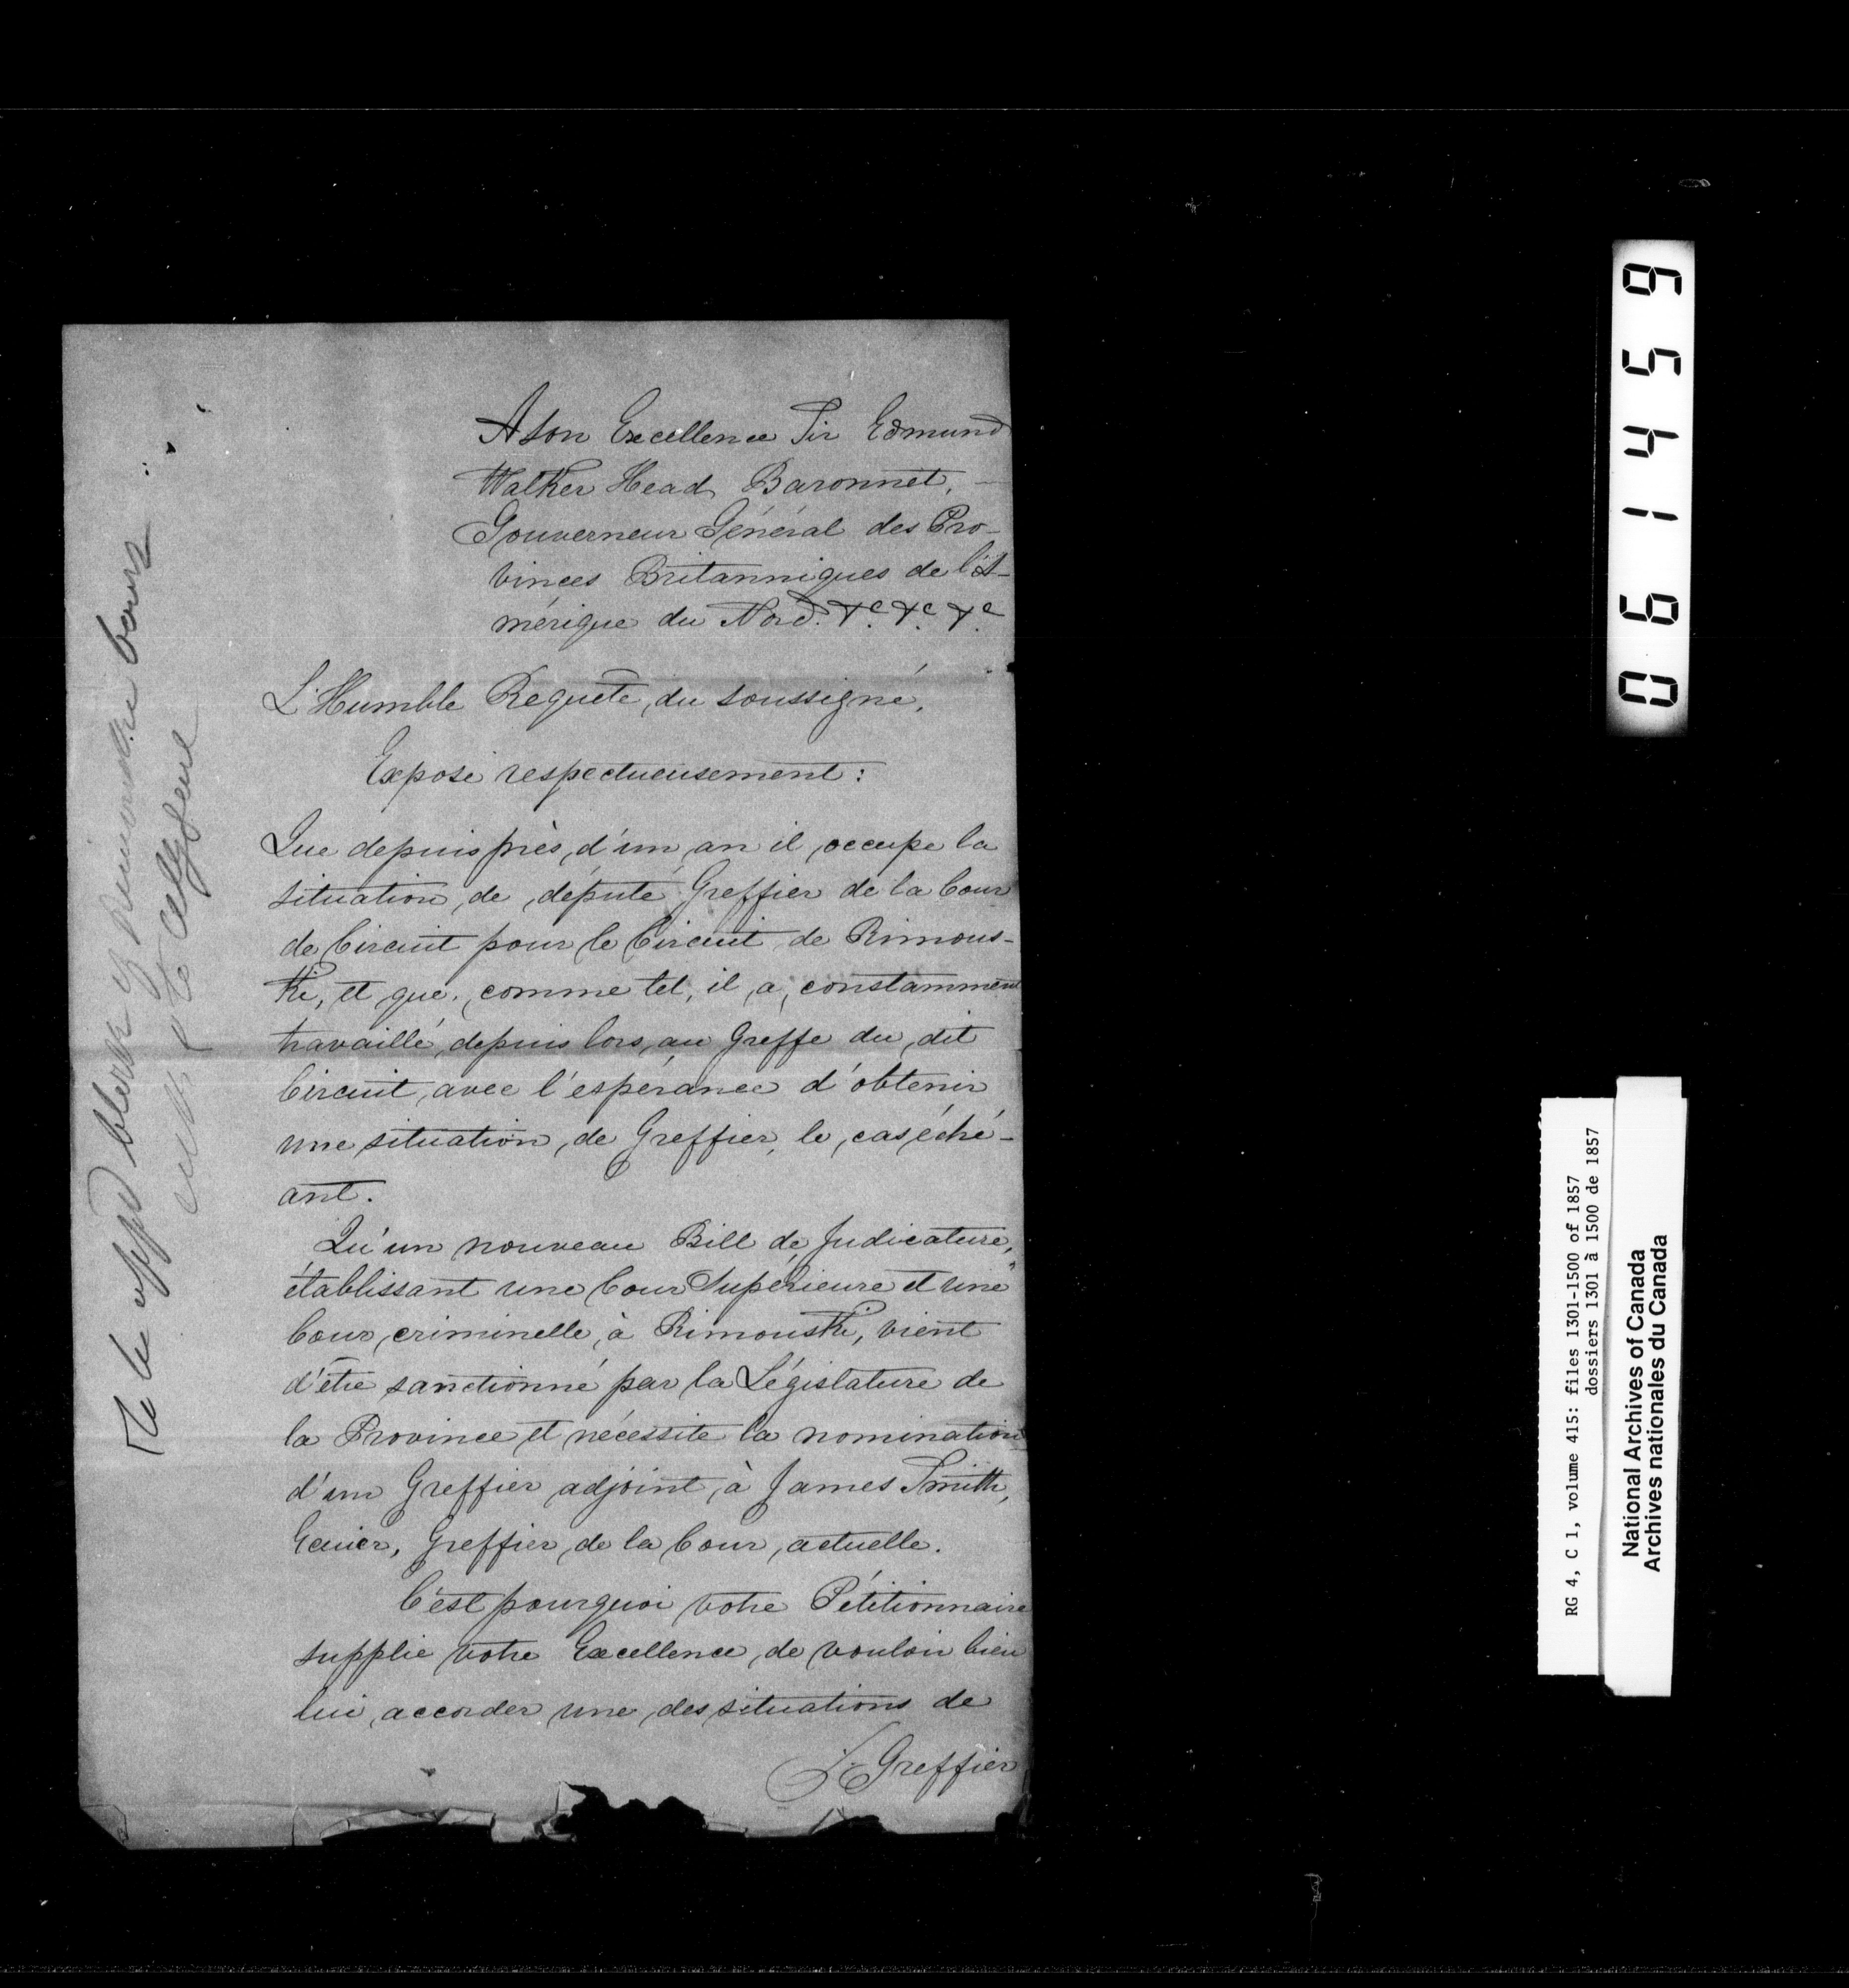 A Son Excellence Sir Edmund
Walker Head Baronnet,
Gouverneur Général des Pro-
vinces Britanniques de l'A-
mérique du Nord. &c. &c. &c
L'Humble Requête, du soussigné,
Expose respectueusement :
Que depuis près, d'un an il occupe la
situation, de député Greffier de la Cour
de Circuit pour le Circuit de Rimous-
ki, et que, comme tel, il a, constamment
travaillé, depuis lors, au Greffe du dit
Circuit, avec l'espérance d'obtenir
une situation, de Greffier, le, cas, éché-
ant.
Qu'un nouveau Bill de Judicature,
établissant une Cour Supérieure et une
Cour, criminelle, à Rimouski, vient
d'être sanctionné par la Législature de
la Province et nécessite la nomination
d'un Greffier adjoint, à James Smith,
Ecuier, Greffier, de la Cour, actuelle.
C'est pourquoi votre Pétitionnaire
supplie votre Excellence, de vouloir bien
lui, accorder une, des situations de
Greffier
To be appd Clerk of Rimouski Court
061459
RG 4, C 1, volume 415: files 1301-1500 of 1857
dossiers 1301 à 1500 de 1857
National Archives of Canada
Archives nationales du Canada